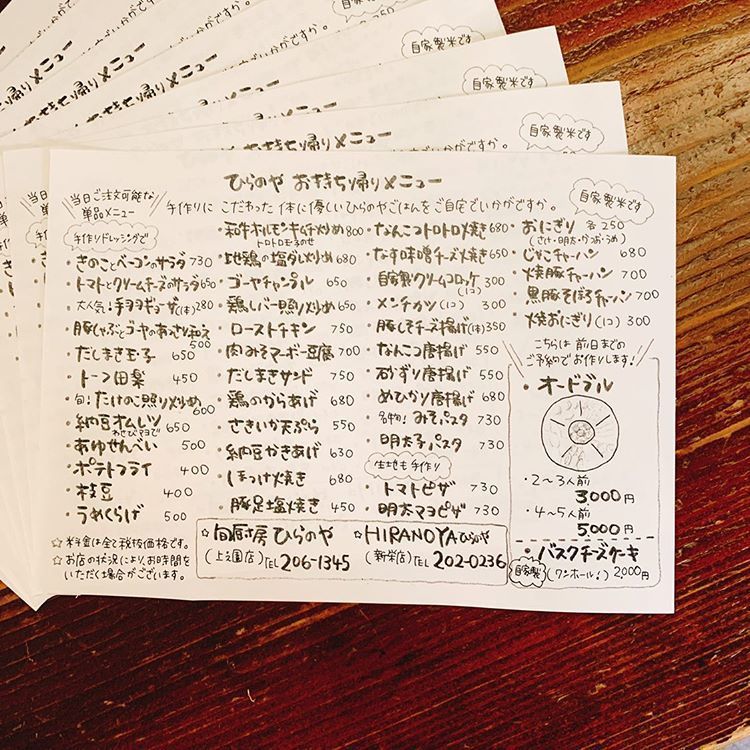 ひらのや お持ち帰りメニュー
手作りに こだわった 体に優しいひらのやごはんをご自宅でいかがですか。
自家製米です
当日ご注文可能な
単品メニュー
手作りドレッシングで
・きのことベーコンのサラダ 730
・トマトとクリームチーズのサラダ 650
・大人気!手羽ギョーザ(1本)280
・豚しゃぶとゴーヤのあさり和え 500
・だしまき玉子 650
・トーフ田楽 450
・旬!たけのこ照り炒め 600
・納豆オムレツ 650
わさびマヨで
・あゆせんべい 500
・ポテトフライ 400
・枝豆 400
・うめくらげ 500
☆料金は全て税抜価格です。
☆お店の状況により、お時間を
いただく場合がございます。
・和牛ホルモンキムチ炒め 800
トロトロ玉子のせ
・地鶏の塩ダレ炒め 680
・ゴーヤチャンプル 650
・鶏レバー照り炒め 650
・ローストチキン 750
・肉みそマーボー豆腐 700
・だしまきサンド 750
・鶏のからあげ 680
・さきいか天ぷら 550
・納豆かきあげ 630
・ほっけ焼き 680
・豚足塩焼き 450
・なんこつトロトロ焼き 680
・なす味噌チーズ焼き 650
・自家製クリームコロッケ(1コ) 300
・メンチカツ(1コ) 300
・豚しそチーズ揚げ(1本)350
・なんこつ唐揚げ 550
・砂ずり唐揚げ 550
・めひかり唐揚げ 680
・名物!みそパスタ 730
・明太子パスタ 730
生地も手作り
・トマトピザ 730
・明太マヨピザ 730
・おにぎり 各250
(さけ・明太・かつお・うめ)
・じゃこチャーハン 680
・焼豚チャーハン 700
・黒豚そぼろチャーハン 700
・焼おにぎり(1コ) 300
こちらは前日までの
ご予約でお作りします!
・オードブル
・2~3人前
3000円
・4~5人前
5000円
・バスクチーズケーキ
自家製 (ワンホール!) 2,000円
☆旬厨房ひらのや
(上之園店)TEL 206-1345
☆HIRANOYAひらのや
(新栄店)TEL 202-0236
お持ち帰りメニュー
いかがですか。
自家製米です
お持ち帰りメニュー
いかがですか。
自家製米です
お持ち帰りメニュー
自家製米です